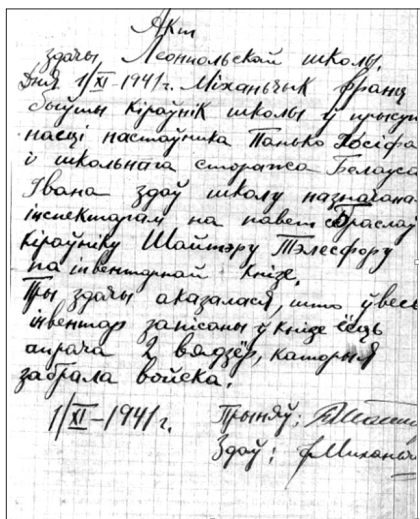 Акт
здачы Леонпольскай школы.
Дня 1/XI-1941 г. Міханьчык Франц
быўшы кіраўнік школы ў прысут
насці настаўніка Панько Юсіфа
і школьнага стоража Белауса
Івана здаў школу назначана
інспектарам на павет Браслаў
кіраўніку Шайтэру Тэлесфору
па інвентарнай кнізе.
Пры здачы аказалася, што ўвесь
інвентар запісаны ў кнізе ёсць
апрача 2 вядзёр, каторыя
забрала войска.
1/XI-1941 г. Прыняў:
Здаў: ф Миханьч